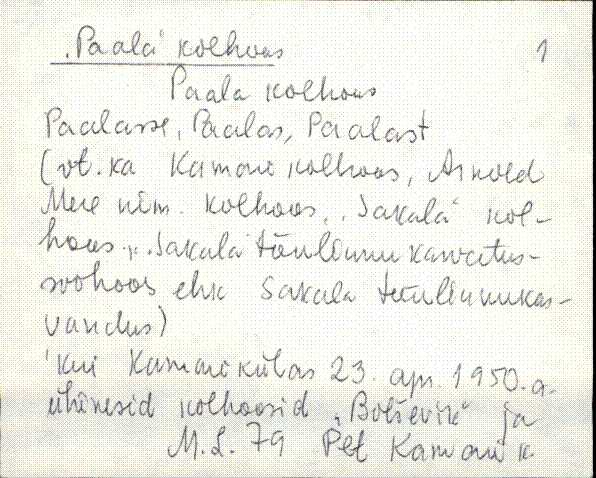 „Paala" kolhoos 1
Paala kolhoos
Paalasse, Paalas, Paalast
(vt. ka Kamari kolhoos, Arnold
Mere nim. kolhoos, „Sakala" kol-
hoos, „Sakala" tõulinnukasvatus-
sovhoos ehk Sakala tõulinnukas-
vandus)
Kui Kamari külas 23. apr. 1950. a.
ühinesid kolhoosid „Bolševik" ja
M.L. 79 Plt Kamari k